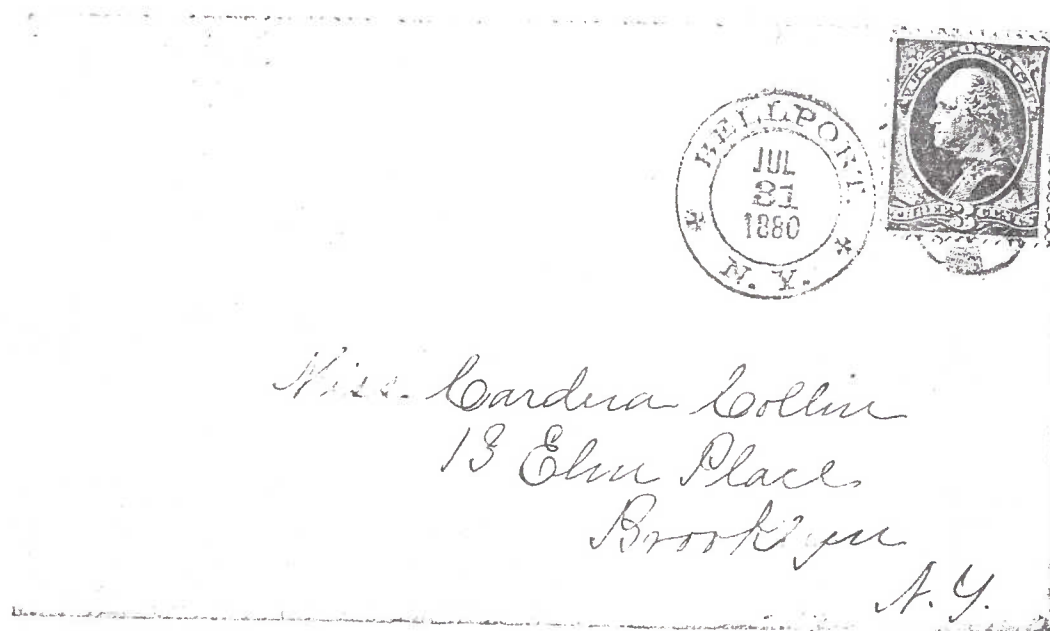 U.S. POSTAGE
THREE 3 CENTS
BELLPORT
JUL
31
1880
N. Y.
Miss. Cardena Collin
13 Elm Place
Brooklyn
N. Y.